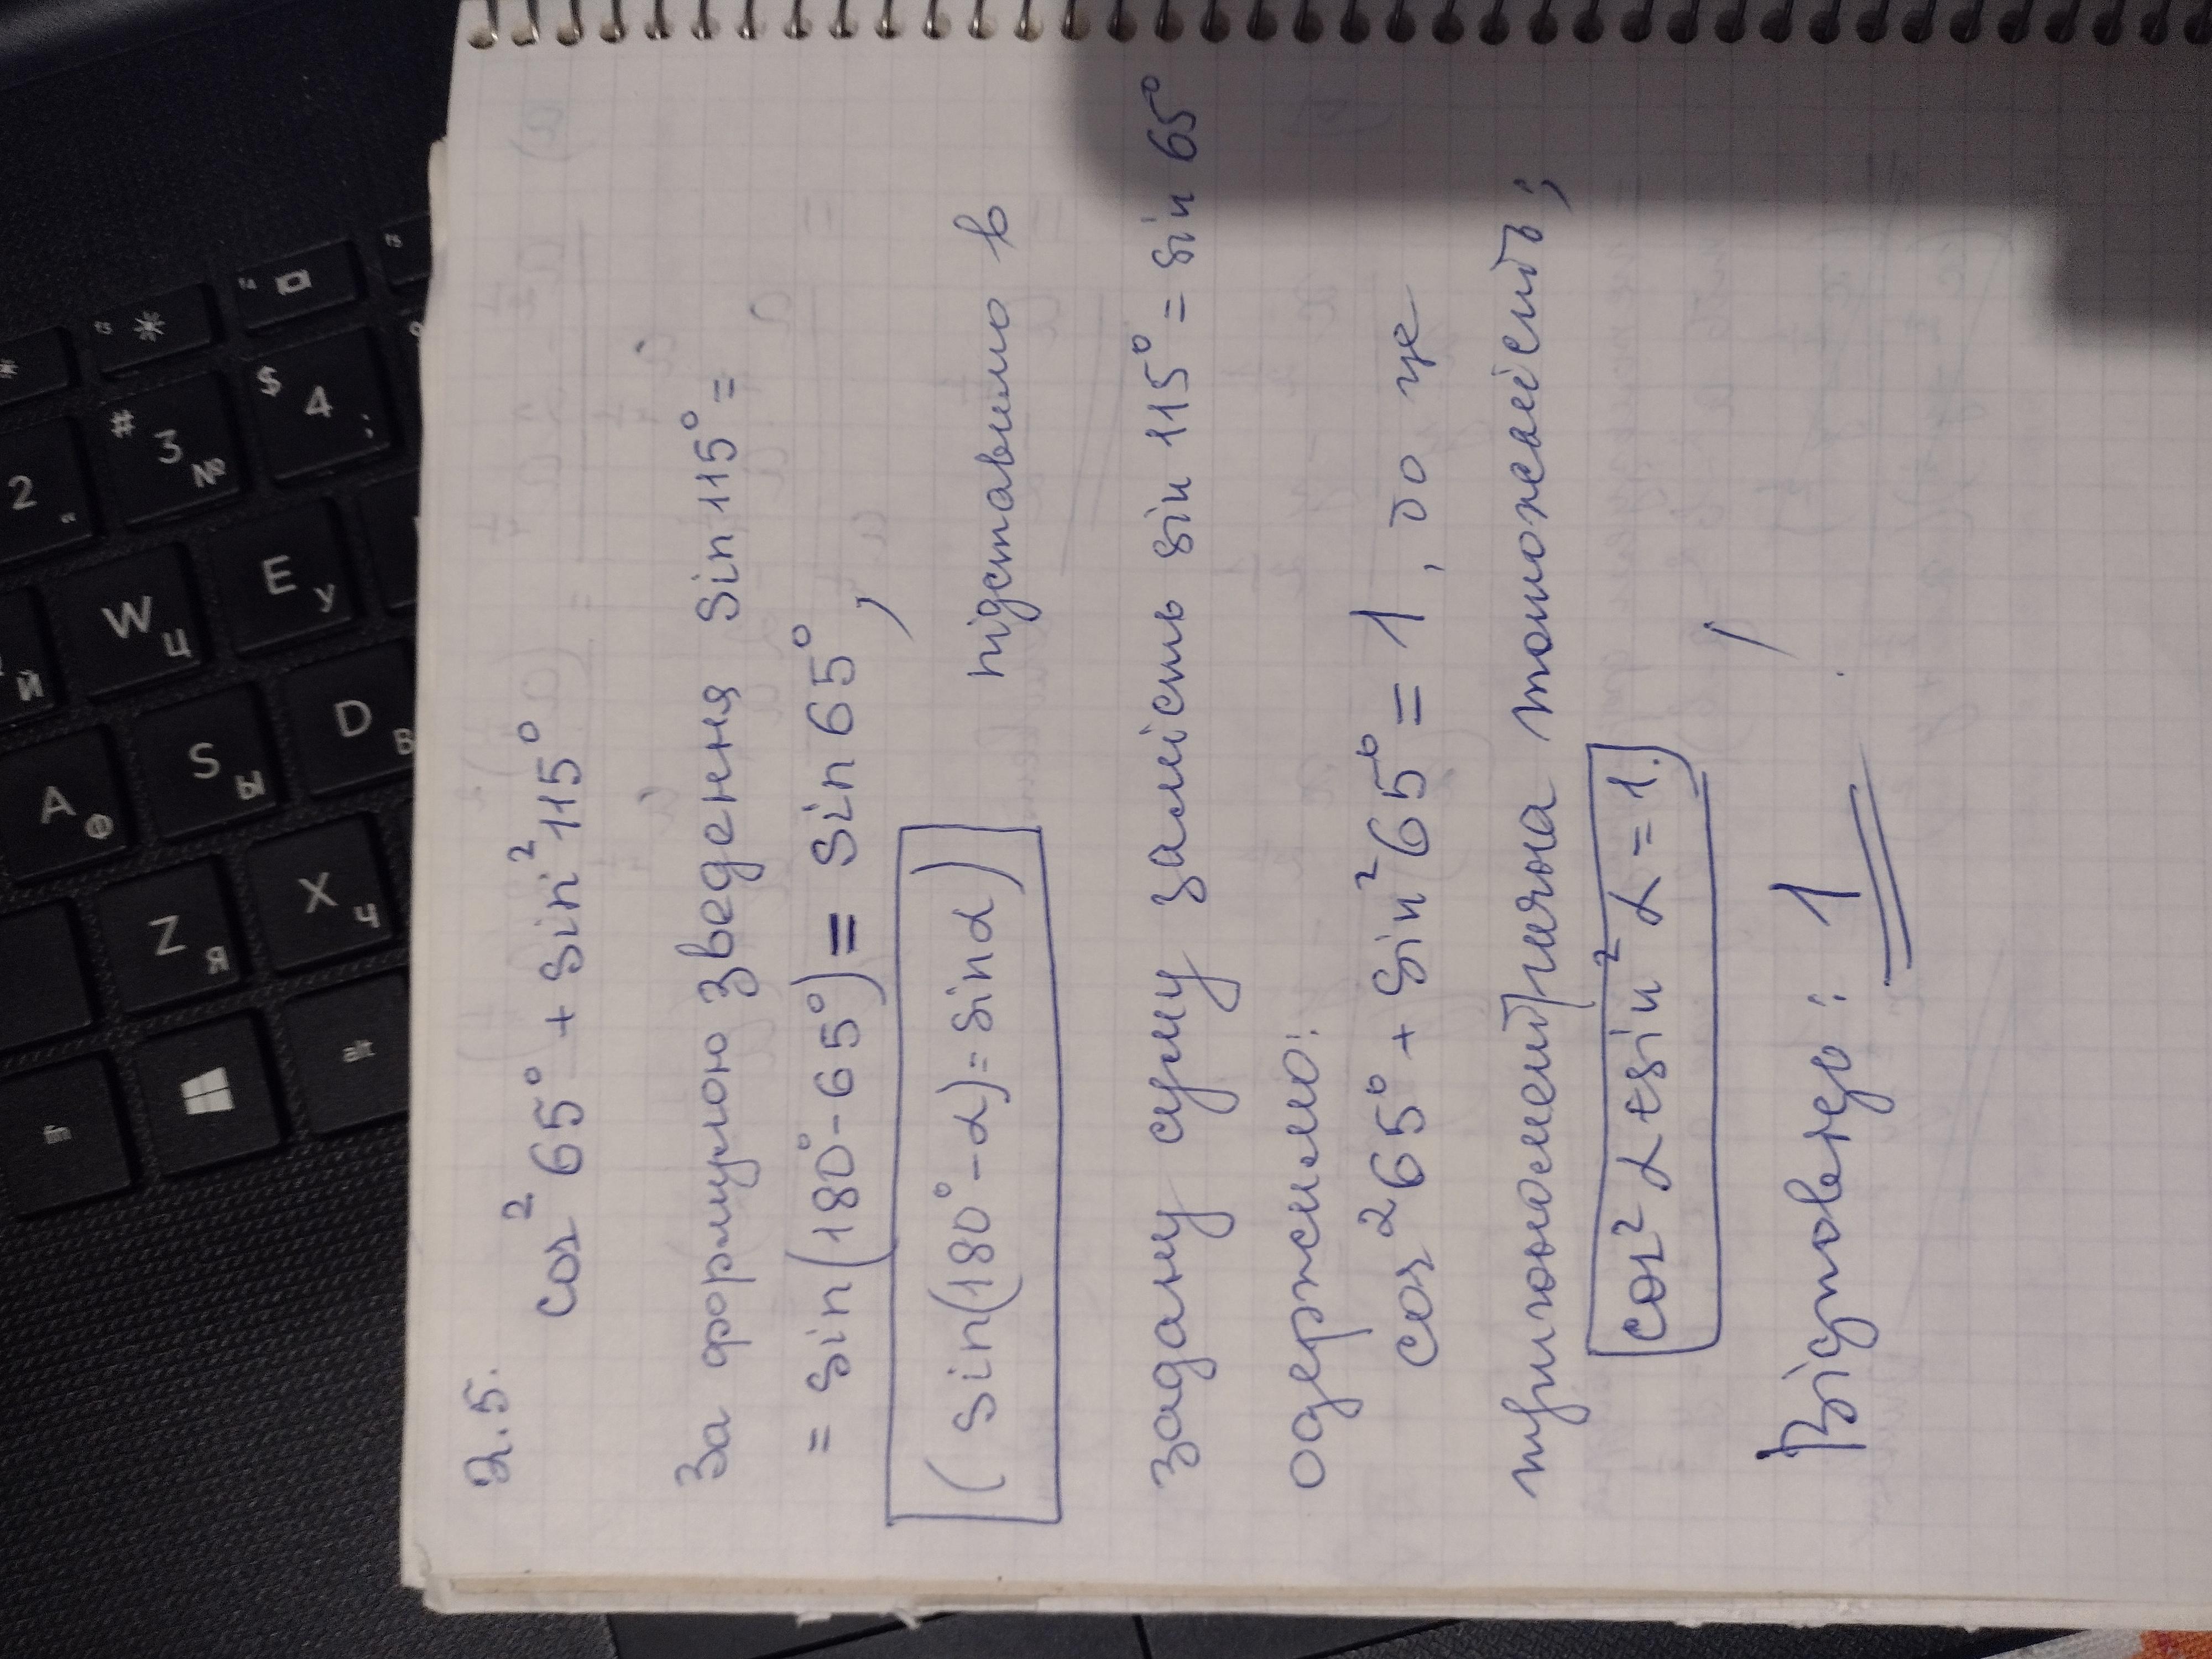 2.5.
cos² 65° + sin² 115°
За формулою зведення sin 115° =
= sin(180° - 65°) = sin 65° ,
(sin(180° - α) = sinα) підставимо в
задану суму замість sin 115° = sin 65°
одержимо:
cos² 65° + sin² 65° = 1 , бо це
тригонометрична тотожність;
cos² α + sin² α = 1.
Відповідь: 1
fn
alt
A Ф
S Ы
D В
Z Я
X Ч
Й
W Ц
E У
2 "
# 3 №
$ 4 ;
f3
f4
f5